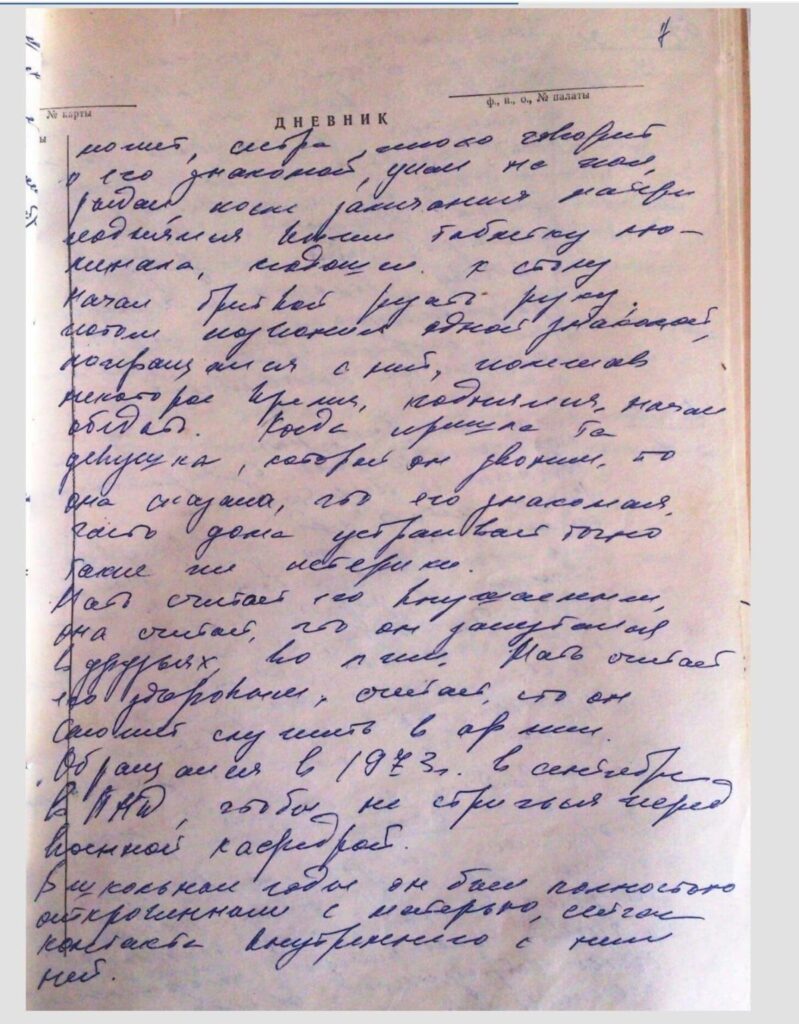 7
№ карты
ф., и., о., № палаты
ДНЕВНИК
может, сестра много говорит
о его знакомой, упал на пол,
рыдал, после замечания матери
поднялся выпил таблетку лю-
минала, подошел к столу
начал бритвой резать руку,
потом позвонил одной знакомой,
попрощался с ней, полежав
некоторое время, поднялся, начал
обедать. Когда пришла та
девушка, которой он звонил, то
она сказала, что его знакомая
часто дома устраивает точно
такие же истерики.
Мать считает его внушаемым,
она считает, что он запутался
в друзьях, во лжи. Мать считает
его здоровым, считает, что он
может служить в армии.
Обращался в 1973г. в сентябре
в ПНД, чтобы не стричься перед
военной кафедрой.
В школьные годы он был полностью
откровенным с матерью, сейчас
контакта внутреннего с ним
нет.